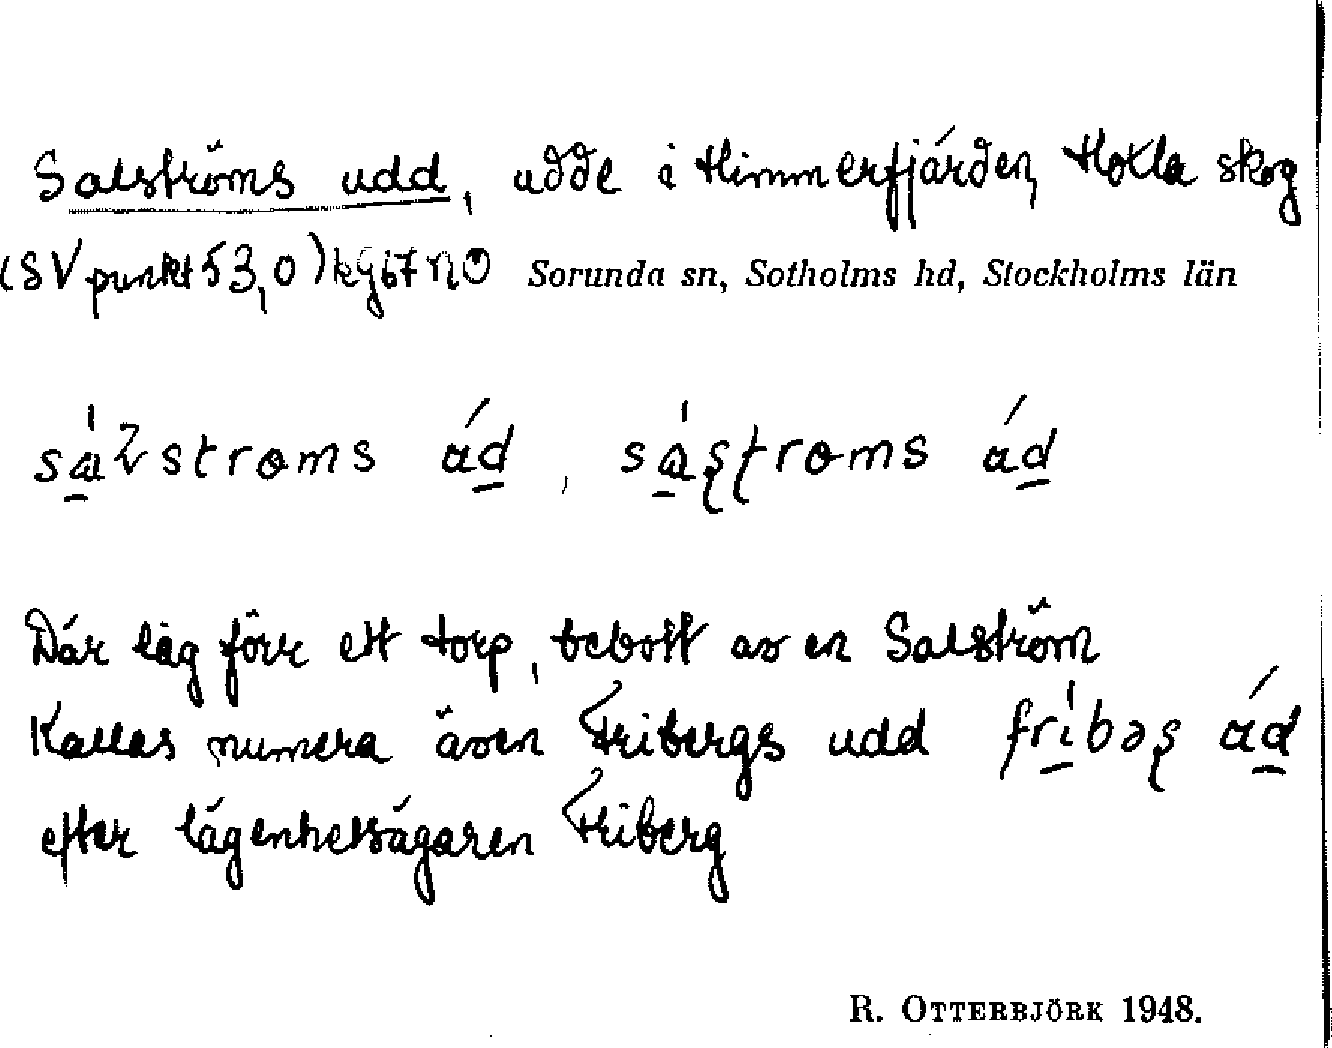 Salströms udd, udde i Himmerfjärden, Hoxla skog
(SV punkt 53,0) kg 67 NO Sorunda sn, Sotholms hd, Stockholms län
Där låg förr ett torp, bebott av en Salström
Kallas numera även Fribergs udd
efter lägenhetsägaren Friberg
R. OTTERBJÖRK 1948.